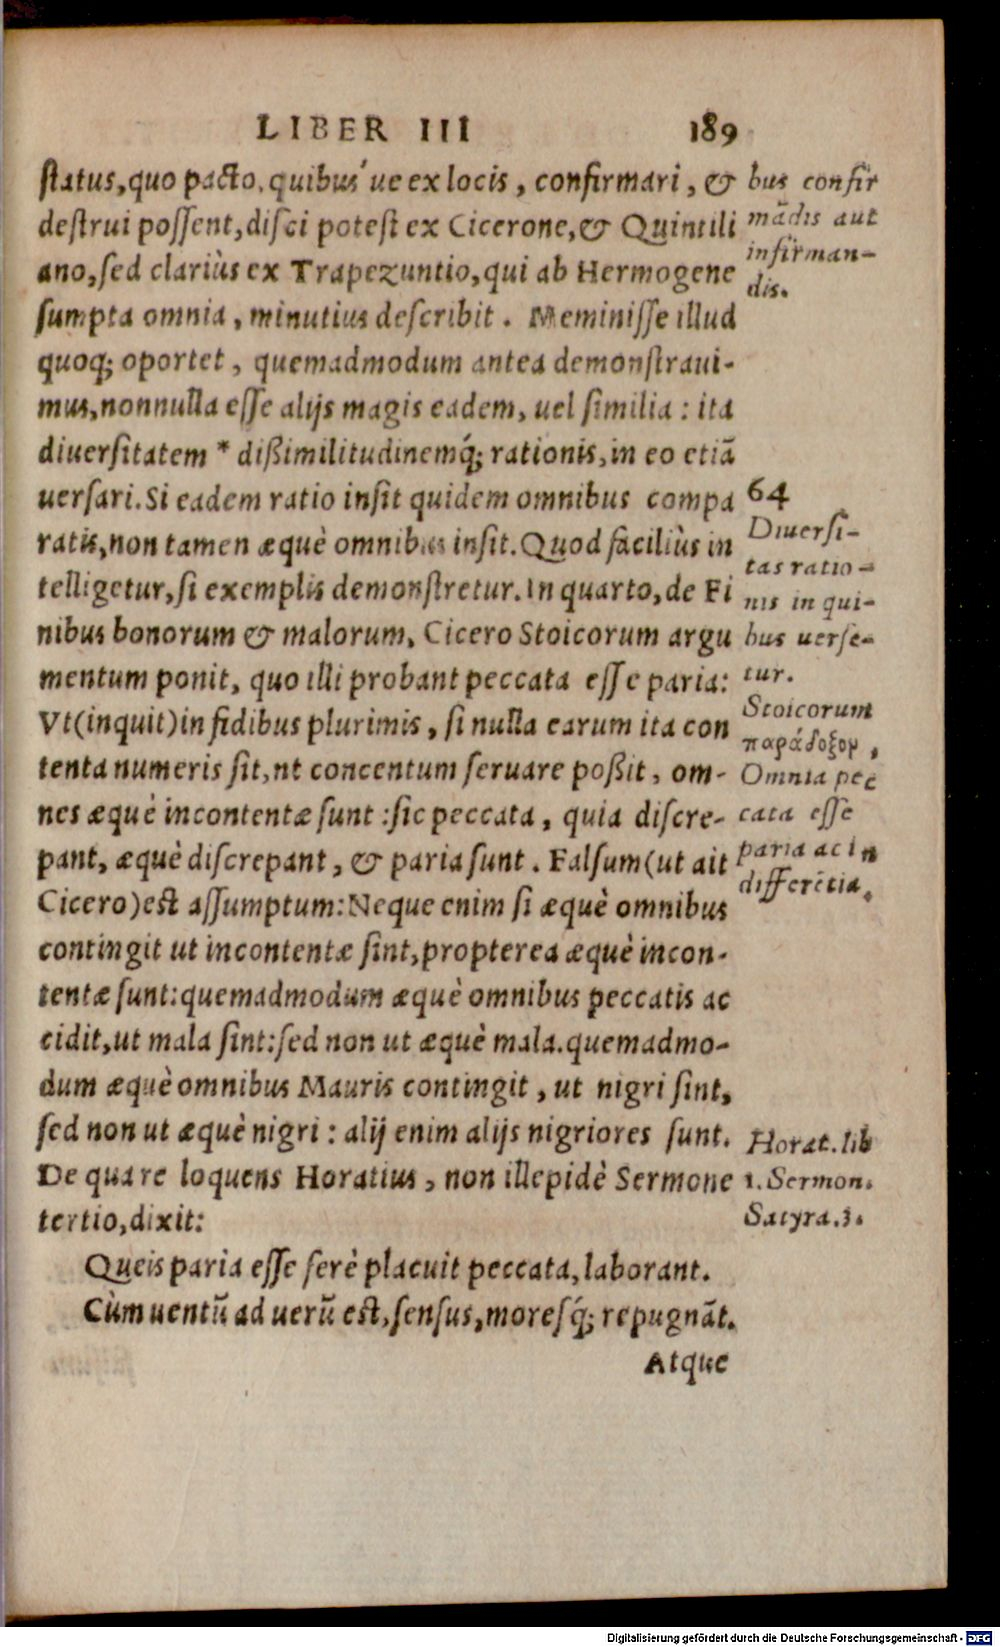 LIBER III 189
status, quo pacto, quibus´ue ex locis, confirmari, &
destrui possent, disci potest ex Cicerone, & Quintili
ano, sed clariùs ex Trapezuntio, qui ab Hermogene
sumpta omnia, minutius describit. Meminisse illud
quoq; oportet, quemadmodum antea demonstraui-
mus, nonnulla esse alijs magis eadem, uel similia: ita
diuersitatem * dißimilitudinemq́; rationis, in eo etiã
uersari. Si eadem ratio insit quidem omnibus compa
ratis, non tamen æquè omnibus insit. Quod faciliùs in
telligetur, si exemplis demonstretur. In quarto, de Fi
nibus bonorum & malorum, Cicero Stoicorum argu
mentum ponit, quo illi probant peccata esse paria:
Vt (inquit) in fidibus plurimis, si nulla earum ita con
tenta numeris sit, nt concentum seruare poßit, om-
nes æquè incontentæ sunt: sic peccata, quia discre-
pant, æquè discrepant, & paria sunt. Falsum (ut ait
Cicero) est assumptum: Neque enim si æquè omnibus
contingit ut incontentæ sint, propterea æquè incon-
tentæ sunt: quemadmodum æquè omnibus peccatis ac
cidit, ut mala sint: sed non ut æquè mala. quemadmo-
dum æquè omnibus Mauris contingit, ut nigri sint,
sed non ut æquè nigri: alij enim alijs nigriores sunt.
De qua re loquens Horatius, non illepidè Sermone
tertio, dixit:
Queis paria esse ferè placuit peccata, laborant.
Cùm uentũ ad uerũ est, sensus, moresq́; repugnãt.
Atque
bus confir
mãdis aut
infirman-
dis.
64
Diuersi-
tas ratio-
nis in qui-
bus uerse-
tur.
Stoicorum
παράδοξον,
Omnia pec
cata esse
paria ac in
differẽtia.
Horat. lib
1. Sermon.
Satyra. 3.
Digitalisierung gefördert durch die Deutsche Forschungsgemeinschaft - DFG